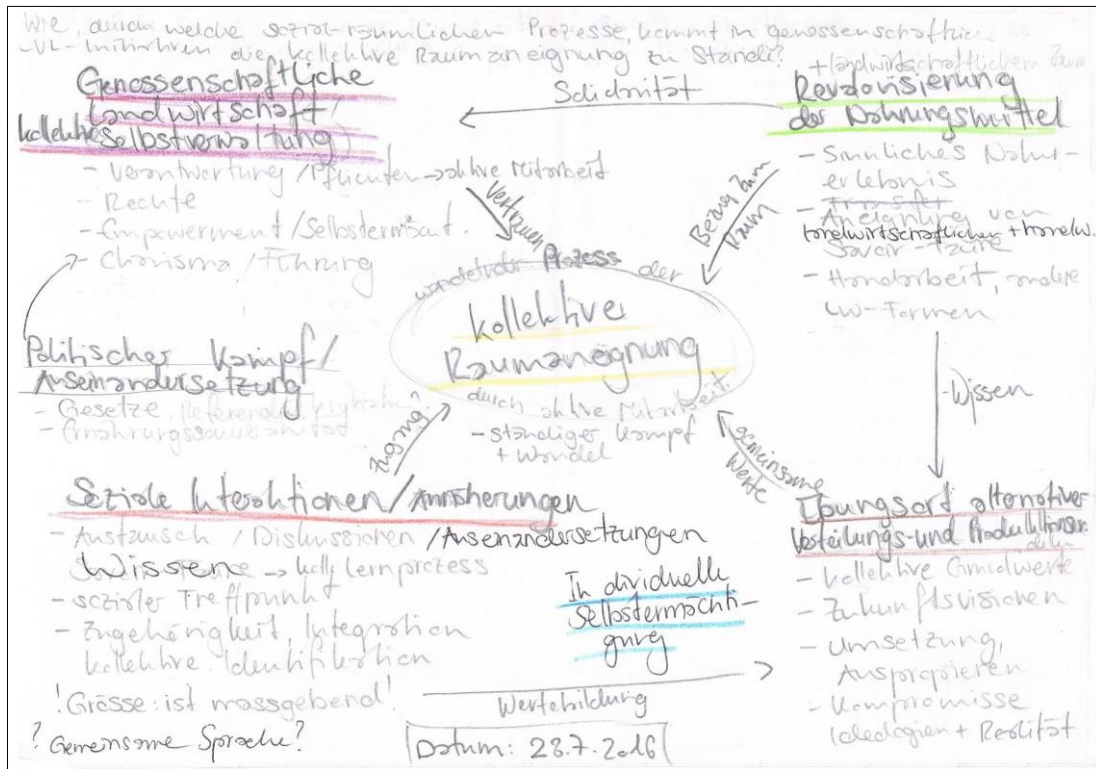 Wie, durch welche sozial-räumlichen Prozesse, kommt in genossenschaftlic.
-VL-Initiativen die kollektive Raumaneignung zu Stande?
Genossenschaftliche
Landwirtschaft/
kollektive Selbstverwaltung
- Verantwortung / Pflichten → aktive Mitarbeit
- Rechte
- Empowerment / Selbstermächt.
- Charisma / Führung
Solidarität
+ landwirtschaftlichem Raum
Revalorisierung
der Nahrungsmittel
- Sinnliches Natur-
erlebnis
- Transfer
Aneignung von
landwirtschaftlicher + handw.
Savoir-faire
- Handarbeit, andere
LW-Formen
Vertrauen
Bezug zum
Raum
wandelnder Prozess der
kollektive
Raumaneignung
durch aktive Mitarbeit.
- ständiger Kampf
+ Wandel
Politischer Kampf/
Auseinandersetzung
- Gesetze, Referenden,
- Ernährungssouveränität
Zugang?
gemeinsame
Werte
- Wissen
Soziale Interaktionen/Annäherungen
- Austausch / Diskussionen /Auseinandersetzungen
Wissen → koll. Lernprozess
- sozialer Treffpunkt
- Zugehörigkeit, Integration
kollektive Identifikation
!Grösse: ist massgebend!
? Gemeinsame Sprache?
Individuelle
Selbstermächti-
gung
Wertebildung
Datum: 28.7.2016
Übungsort alternativer
Verteilungs- und Produktionsmodelle
- kollektive Grundwerte
- Zukunftsvisionen
- Umsetzung,
Ausprobieren
- Kompromisse
Ideologien + Realität